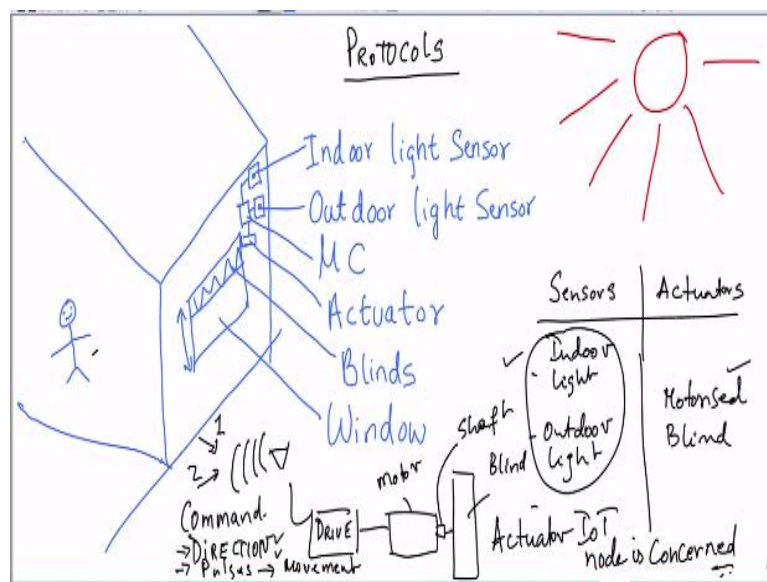 PROTOCOLS
Indoor light Sensor
Outdoor light Sensor
MC
Actuator
Blinds
Window
Sensors
Actuators
Indoor
light
Outdoor
light
Motorised
Blind
1
2
Command
→ DIRECTION
→ Pulses → Movement
DRIVE
motor
shaft
Blind
Actuator IoT
node is Concerned